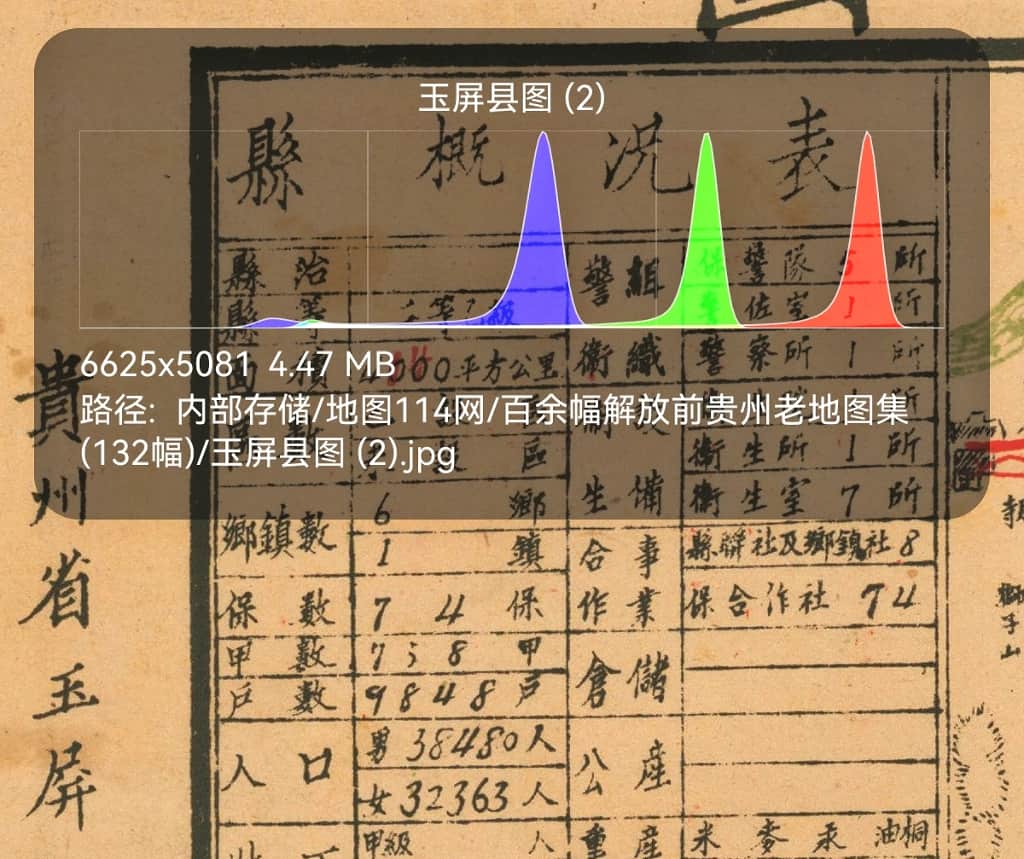 玉屏县图 (2)
6625x5081 4.47 MB
路径: 内部存储/地图114网/百余幅解放前贵州老地图集
(132幅)/玉屏县图 (2).jpg
貴州省玉屏
縣概况表
縣治
縣等
面積 平方公里
區
鄉鎮數 6 鄉
1 鎮
保數 74 保
甲數 758 甲
戶數 9848 戶
人口 男 38480 人
女 32363 人
甲級 人
警衛組織
警隊 5 所
佐室 1 所
警察所 1 所
衛生設備
衛生所 1 所
衛生室 7 所
合作事業
縣聯社及鄉鎮社 8
保合作社 74
倉儲
公産
重産 米 麥 油桐
獅子山